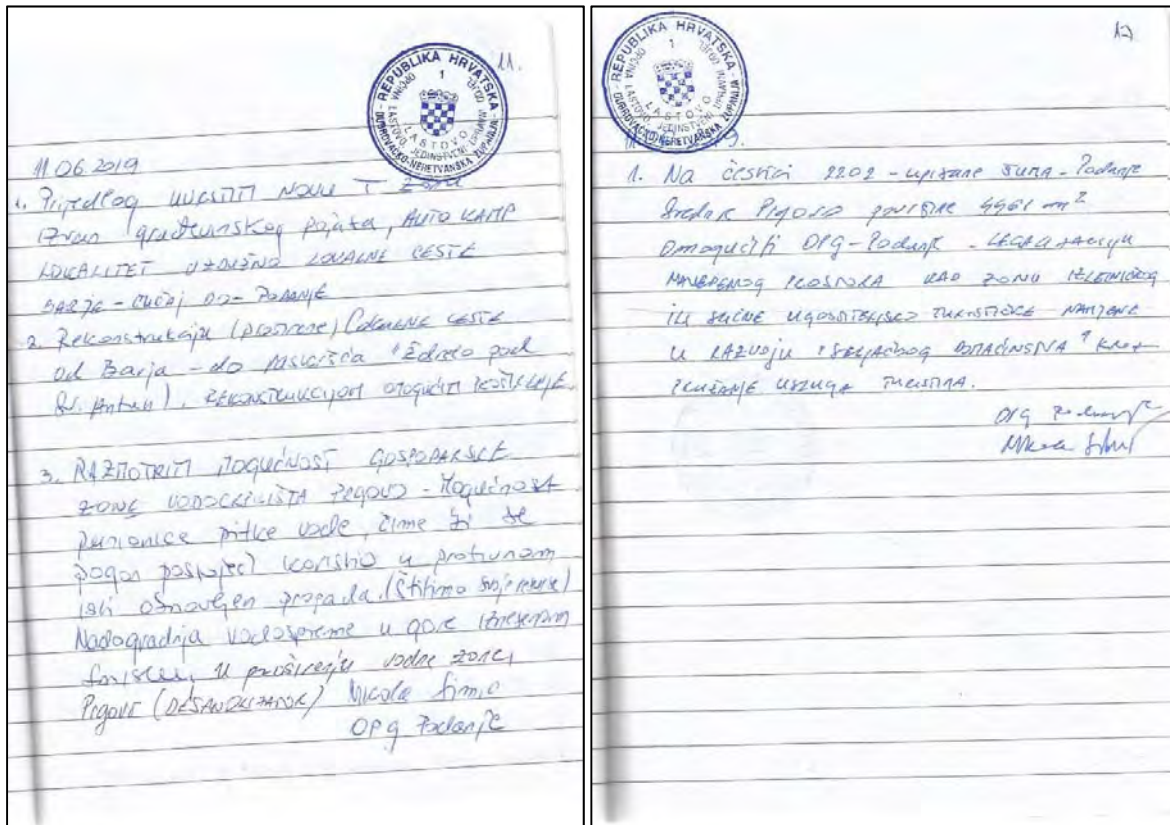 REPUBLIKA HRVATSKA
DUBROVAČKO-NERETVANSKA ŽUPANIJA
OPĆINA LASTOVO
JEDINSTVENI UPRAVNI
1
11.
11.06.2019
1. Prijedlog UVRSTITI NOVU T ZONU
Izvan građevinskog pojasa, AUTO KAMP
LOKALITET UZDUŽNO LOKALNE CESTE
BARJE - DO - PODANJE
2. Rekonstrukciju (proširenje) lokalne CESTE
od Barja - do "Ždrelo pod
Sv. Antun". REKONSTRUKCIJOM OMOGUĆITI PROŠIRENJE.
3. RAZMOTRITI MOGUĆNOST GOSPODARSKE
ZONE VODOCRPILIŠTA PRGOVO - Mogućnost
punionice pitke vode, čime bi se
pogon postojeći koristio u protivnom
isti obnovljen propada. (Štitimo svoje resurse)
Nadogradnja vodospreme u gore iznesenom
u proširenju vodne zone,
Prgovo (DESANOLIZATOR) Nikola Simic
OPG Podanje
REPUBLIKA HRVATSKA
DUBROVAČKO-NERETVANSKA ŽUPANIJA
OPĆINA LASTOVO
JEDINSTVENI UPRAVNI
1
12)
1. Na čestici 2202 - upisane ŠUMA - Podanje
Srednje Prgovo površine 4961 m2
Omogućiti OPG - Podanje - LEGALIZACIJU
PROSTORA KAO ZONU IZLETNIČKOG
ILI SLIČNE UGOSTITELJSKO TURISTIČKE NAMJENE
U RAZVOJU "SELJAČKOG DOMAĆINSTVA" kroz
PRUŽANJE USLUGA TURISTIMA.
OPG Podanje